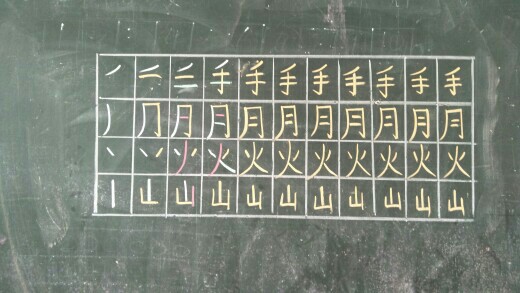 丿 二 三 手 手 手 手 手 手 手 手
丿 冂 月 月 月 月 月 月 月 月 月
丶 丷 火 火 火 火 火 火 火 火 火
丨 山 山 山 山 山 山 山 山 山